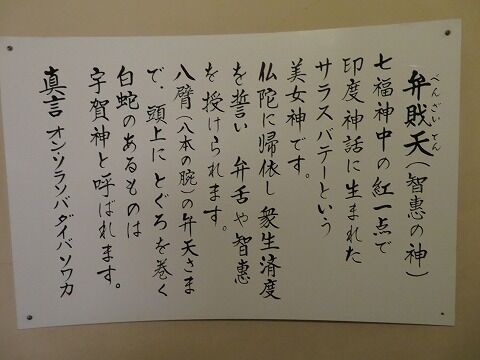 べんざいてん
弁財天(智恵の神)
七福神中の紅一点で
印度神話に生まれた
サラスバテーという
美女神です。
仏陀に帰依し衆生済度
を誓い 弁舌や智恵
を授けられます。
八臂(八本の腕)の弁天さま
で、頭上にとぐろを巻く
白蛇のあるものは
宇賀神と呼ばれます。
真言 オンソラソバダイバソワカ